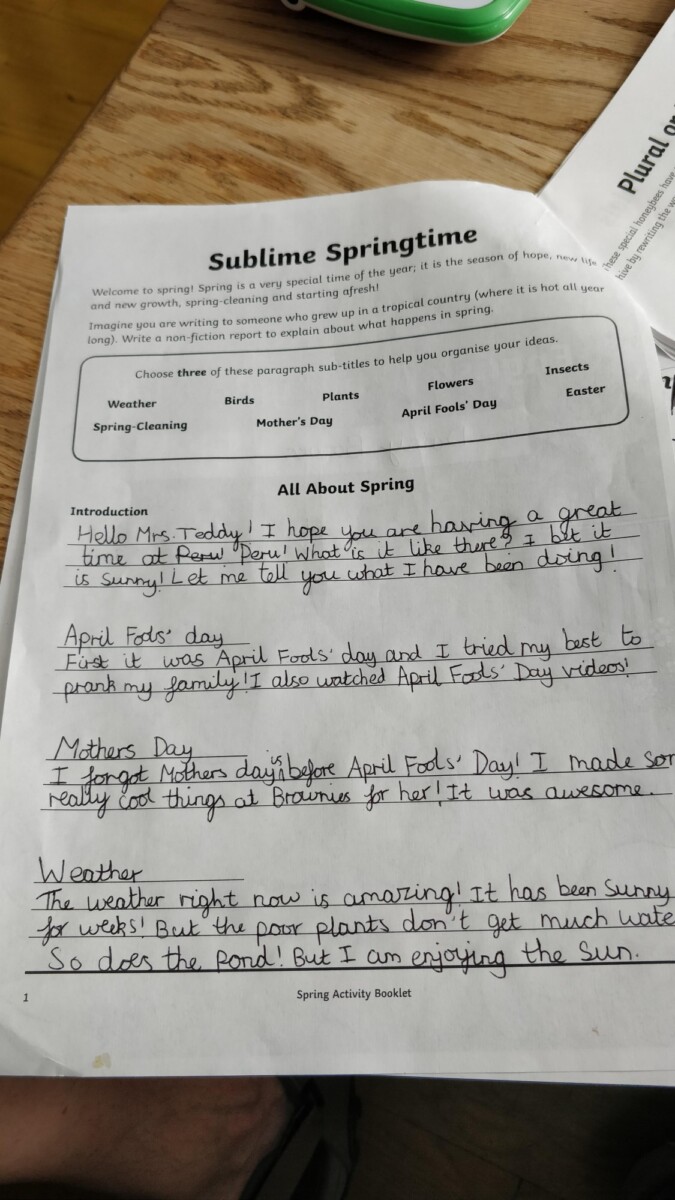 Sublime Springtime
Welcome to spring! Spring is a very special time of the year; it is the season of hope, new life
and new growth, spring-cleaning and starting afresh!
Imagine you are writing to someone who grew up in a tropical country (where it is hot all year
long). Write a non-fiction report to explain about what happens in spring.
Choose three of these paragraph sub-titles to help you organise your ideas.
Weather Birds Plants Flowers Insects
Spring-Cleaning Mother's Day April Fools' Day Easter
All About Spring
Introduction
Hello Mrs. Teddy! I hope you are having a great
time at Peru Peru! What is it like there? I bet it
is sunny! Let me tell you what I have been doing!
April Fools' day
First it was April Fools' day and I tried my best to
prank my family! I also watched April Fools' Day videos!
Mothers Day
I forgot Mothers day is before April Fools' Day! I made
really cool things at Brownies for her! It was awesome.
Weather
The weather right now is amazing! It has been Sunny
for weeks! But the poor plants don't get much
So does the Pond! But I am enjoying the Sun.
1
Spring Activity Booklet
Plural or
These special honeybees have
hive by rewriting the